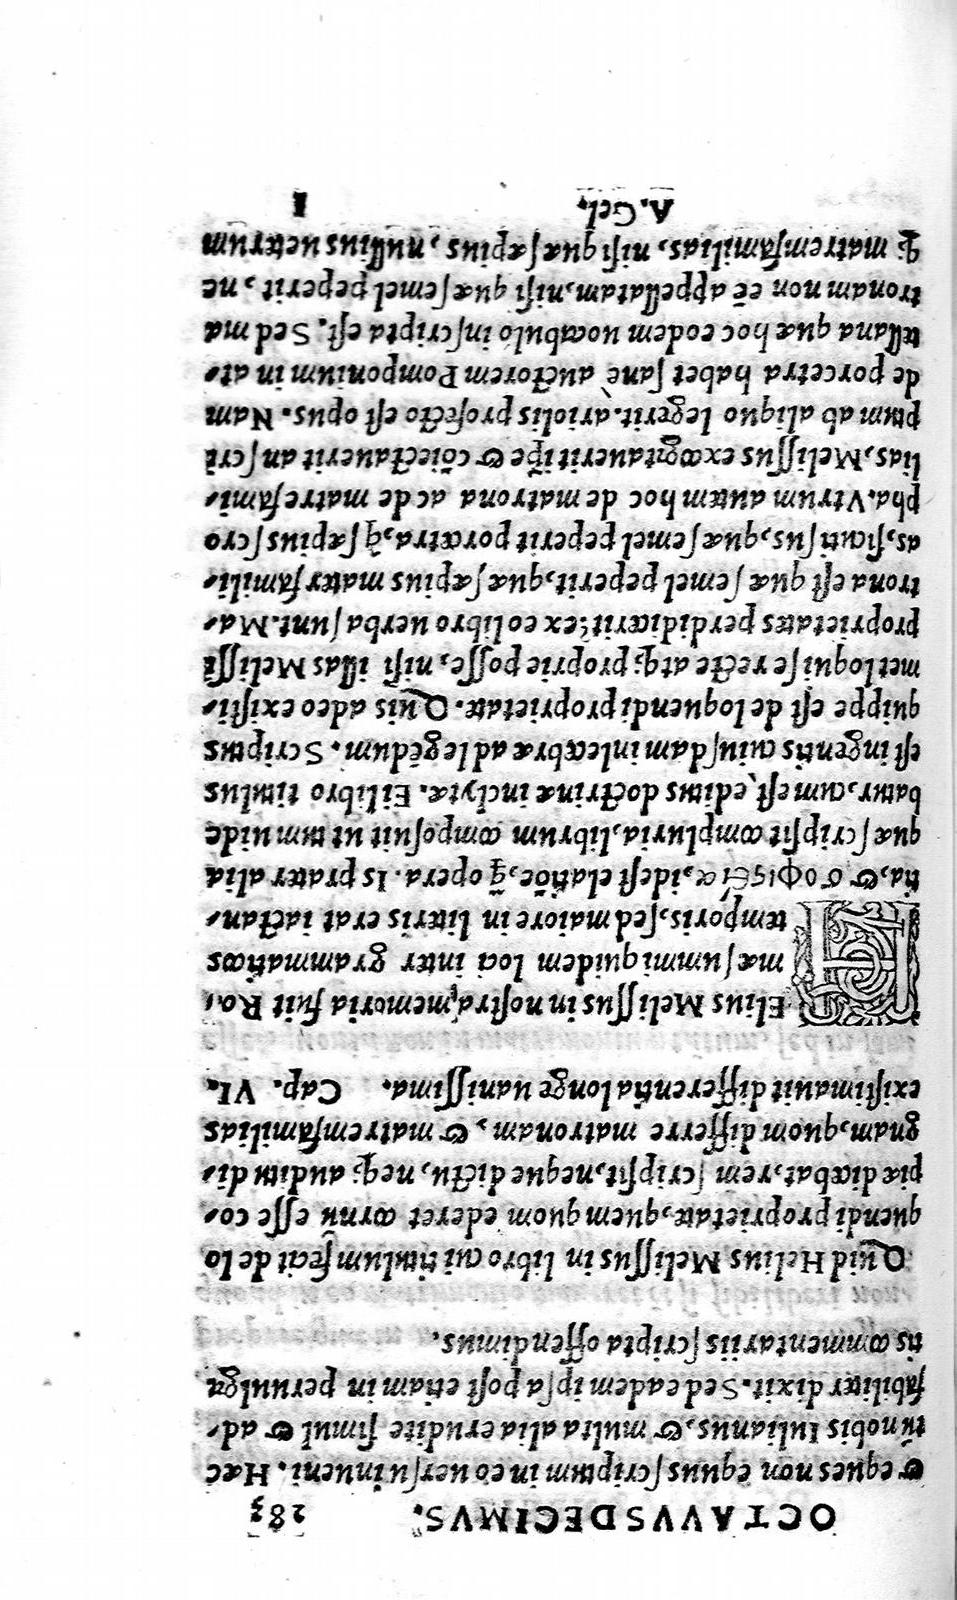 OCTAVVSDECIMVS. 283
& eques non equus scriptum in eo uersu inueni. Hæc
tū nobis Iulianus, & multa alia erudite simul & ad-
fabiliter dixit. Sed eadem ipsa post etiam in peruulga
tis commentariis scripta offendimus.
Quid Helius Melissus in libro cui titulum fecit de lo
quendi proprietate, quem quom ederet cornū esse co-
piæ dicebat, rem scripsit, neque dictu, neq; auditu di-
gnam, quom differre matronam, & matremfamilias
existimauit differentia longe uanissima. Cap. VI.
HElius Melissus in nostra memoria fuit Ro-
mæ summi quidem loci inter grammaticos
temporis, sed maiore in litteris erat iactan-
tia, & σοφιστείᾳ, idest elatiōe, q̄ opera. Is præter alia
quæ scripsit compluria, librum composuit ut tum uide
batur, cum est editus doctrinæ inclytæ. Ei libro titulus
est ingentis cuiusdam inlecebræ ad legēdum. Scriptus
quippe est de loquendi proprietate. Quis adeo existi-
met loqui se recte atq; proprie posse, nisi illas Melissi
proprietates perdidicerit? ex eo libro uerba sunt. Ma-
trona est quæ semel peperit, quæ sæpius mater famili-
as, sicuti sus, quæ semel peperit porcetra, q̄ sæpius scro
pha. Vtrum autem hoc de matrona ac de matrefami-
lias, Melissus excogitauerit ipse & cōiectauerit an scri
ptum ab aliquo legerit. àriolis profecto est opus. Nam
de porcetra habet sanè auctorem Pomponium in at-
tellana quæ hoc eodem uocabulo inscripta est. Sed ma
tronam non eē appellatam, nisi quæ semel peperit, ne
q; matremfamilias, nisi quæ sæpius, nullius ueterum
A. Gel. I